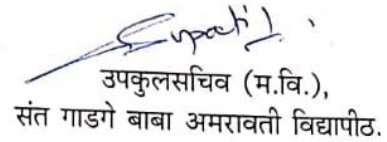 उपकुलसचिव (म.वि.),
संत गाडगे बाबा अमरावती विद्यापीठ.